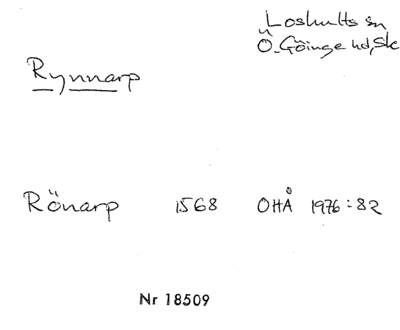 Loshults sn
Ö. Göinge hd, Sk
Rynnarp
Rönarp 1568 OHÅ 1976:82
Nr 18509